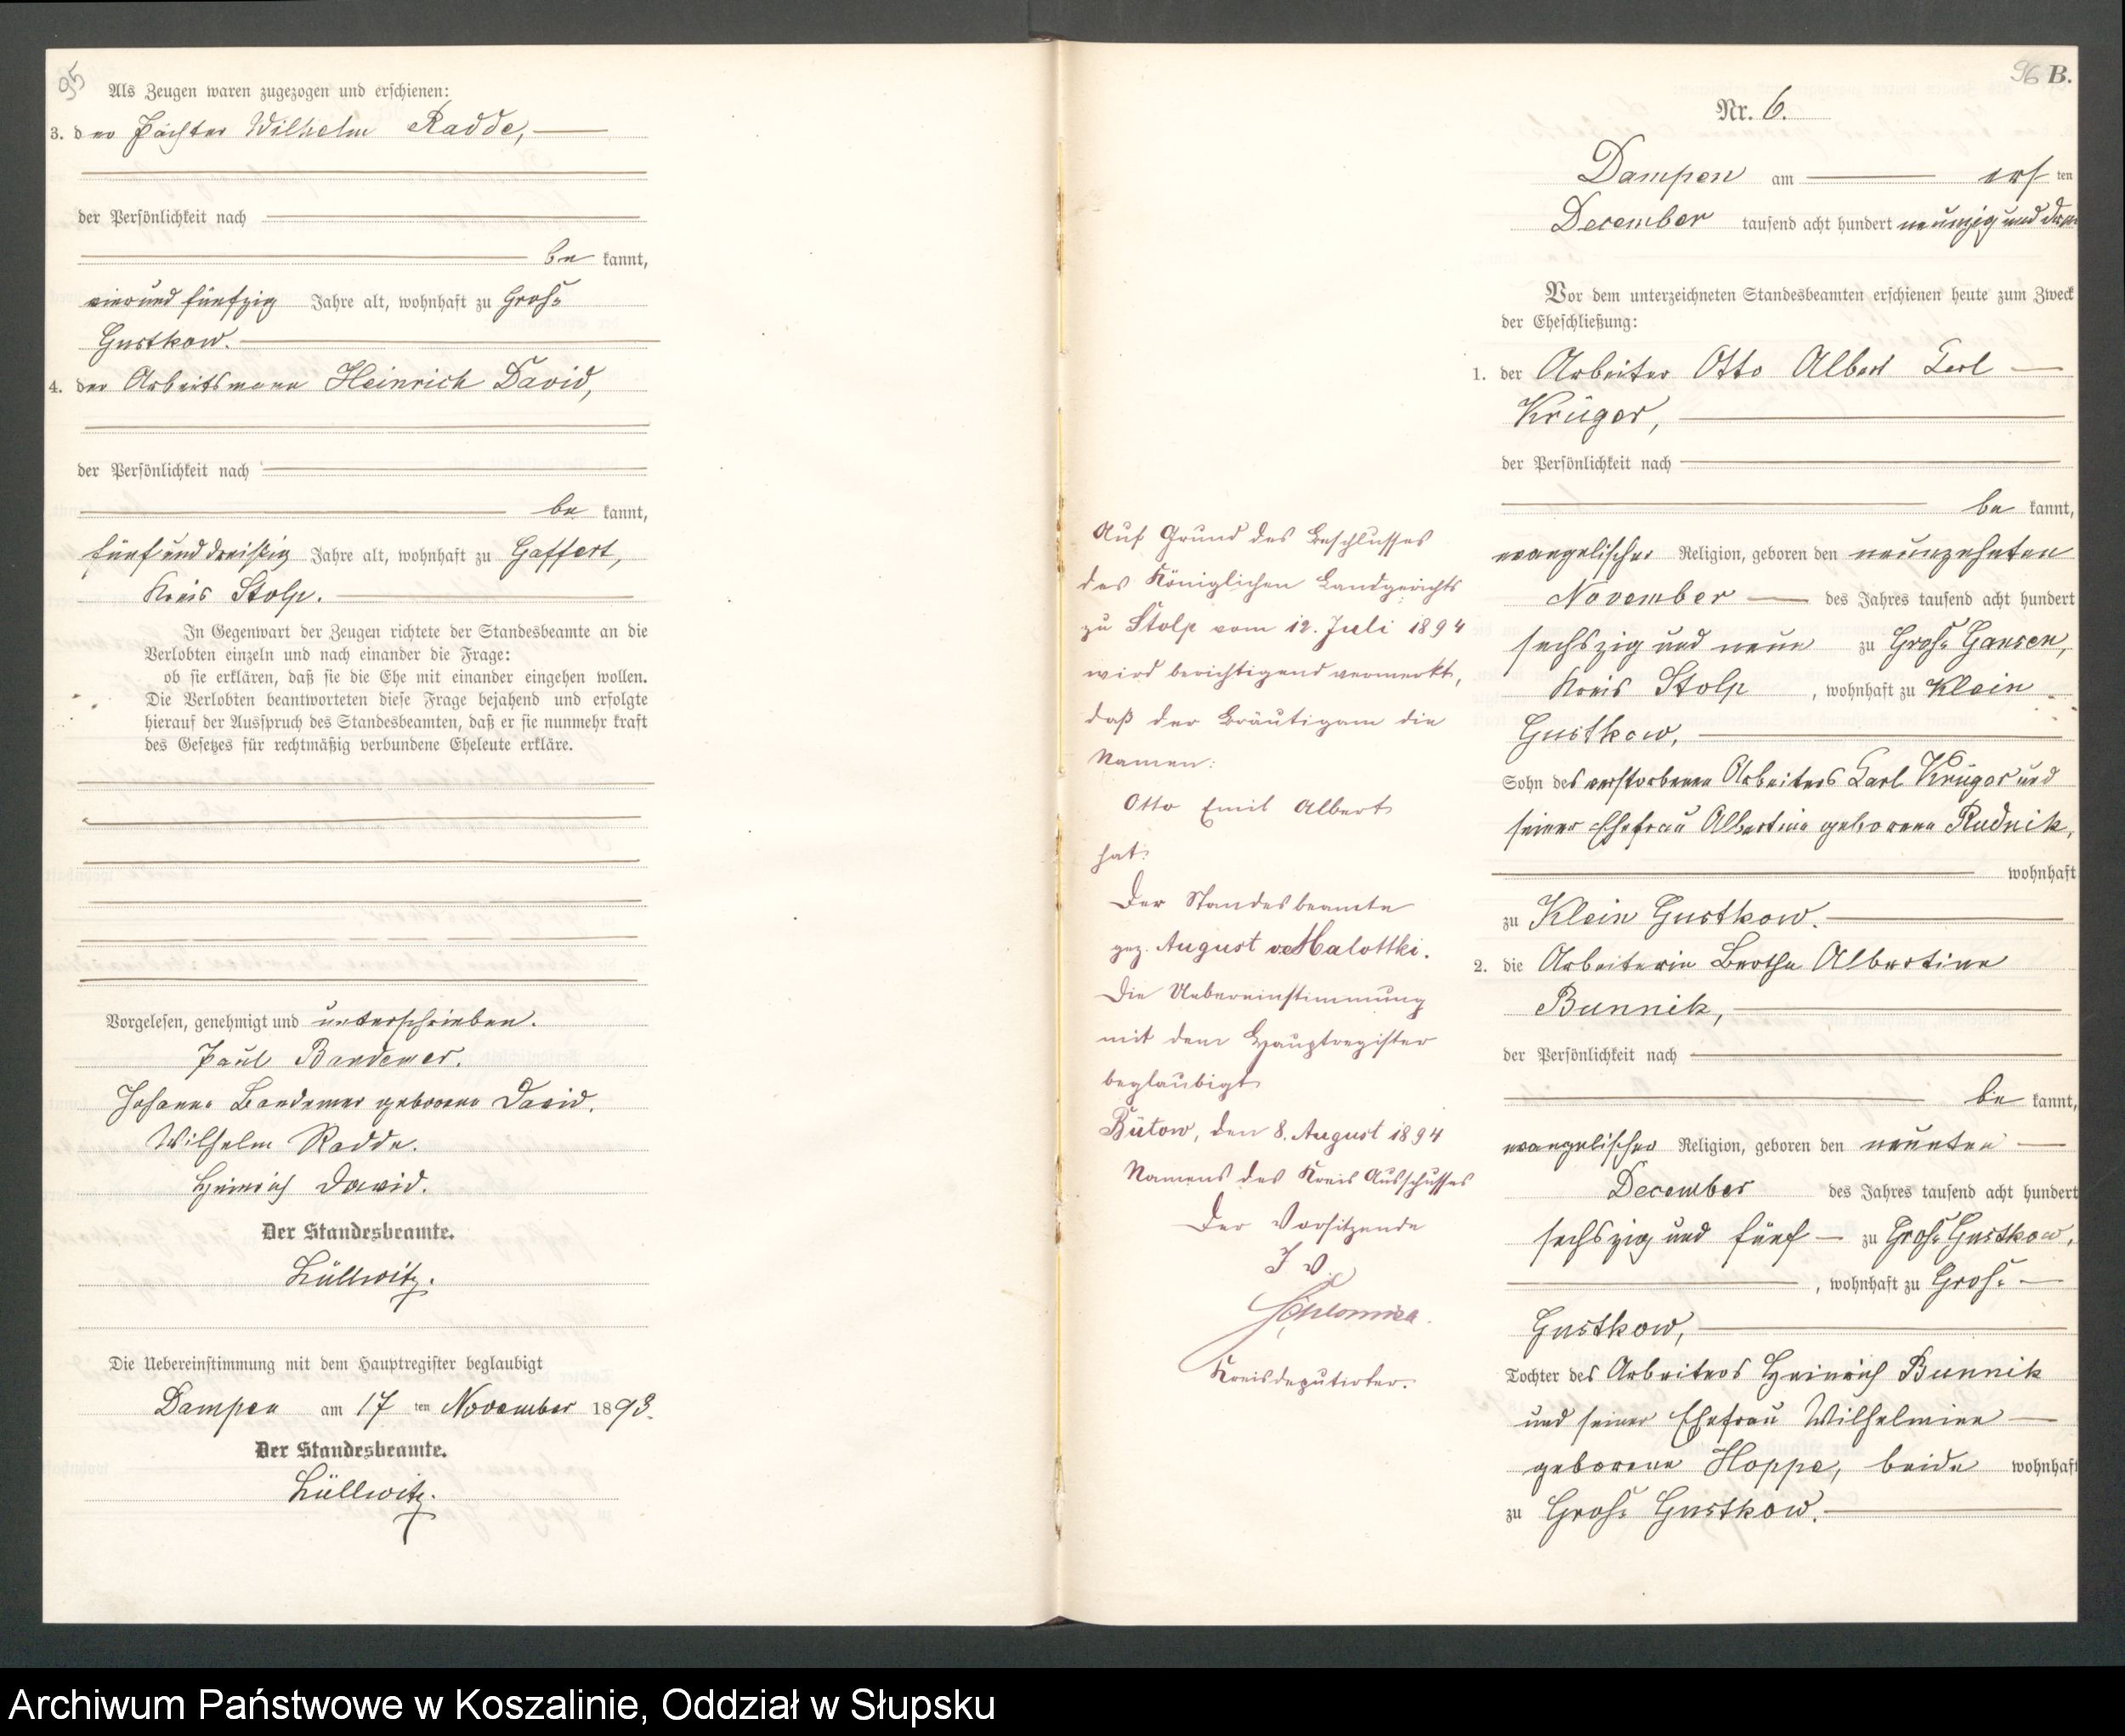 95
Als Zeugen waren zugezogen und erschienen:
3. der Pächter Wilhelm Radde,
der Persönlichkeit nach
be kannt,
vier und fünfzig Jahre alt, wohnhaft zu Groß-
Gustkow.
4. der Arbeitsmann Heinrich David,
der Persönlichkeit nach
be kannt,
fünf und dreißig Jahre alt, wohnhaft zu Gaffert,
Kreis Stolp.
In Gegenwart der Zeugen richtete der Standesbeamte an die
Verlobten einzeln und nach einander die Frage:
ob sie erklären, daß sie die Ehe mit einander eingehen wollen.
Die Verlobten beantworteten diese Frage bejahend und erfolgte
hierauf der Ausspruch des Standesbeamten, daß er sie nunmehr kraft
des Gesetzes für rechtmäßig verbundene Eheleute erkläre.
Vorgelesen, genehmigt und unterschrieben.
Paul Bandemer.
Johanne Bandemer geborene David.
Wilhelm Radde.
Heinrich David.
Der Standesbeamte.
Lüllwitz.
Die Uebereinstimmung mit dem Hauptregister beglaubigt
Dampen am 17 ten November 1893.
Der Standesbeamte.
Lüllwitz.
Auf Grund des Beschlusses
des Königlichen Landgerichts
zu Stolp vom 12. Juli 1894
wird berichtigend vermerkt,
daß der Bräutigam die
Namen:
Otto Emil Albert
hat.
Der Standesbeamte
gez. August v. Malottki.
Die Uebereinstimmung
mit dem Hauptregister
beglaubigt
Bütow, den 8. August 1894
Namens des Kreis Ausschusses
Der Vorsitzende
I V.
Kreisdeputirter.
96 B.
Nr. 6.
Dampen am ers ten
December tausend acht hundert neunzig und drei
Vor dem unterzeichneten Standesbeamten erschienen heute zum Zweck
der Eheschließung:
1. der Arbeiter Otto Albert Carl
Krüger,
der Persönlichkeit nach
be kannt,
evangelischer Religion, geboren den neunzehnten
November des Jahres tausend acht hundert
sechszig und neun zu Groß Gansen,
Kreis Stolp, wohnhaft zu Klein
Gustkow,
Sohn des verstorbenen Arbeiters Carl Krüger und
seiner Ehefrau Albertine geborene Rudnik,
wohnhaft
zu Klein Gustkow.
2. die Arbeiterin Bertha Albertine
Bunnik,
der Persönlichkeit nach
be kannt,
evangelischer Religion, geboren den neunten
December des Jahres tausend acht hundert
sechszig und fünf zu Groß Gustkow,
, wohnhaft zu Groß-
Gustkow,
Tochter des Arbeiters Heinrich Bunnik
und seiner Ehefrau Wilhelmine
geborene Hoppe, beide wohnhaft
zu Groß Gustkow.
Archiwum Państwowe w Koszalinie, Oddział w Słupsku